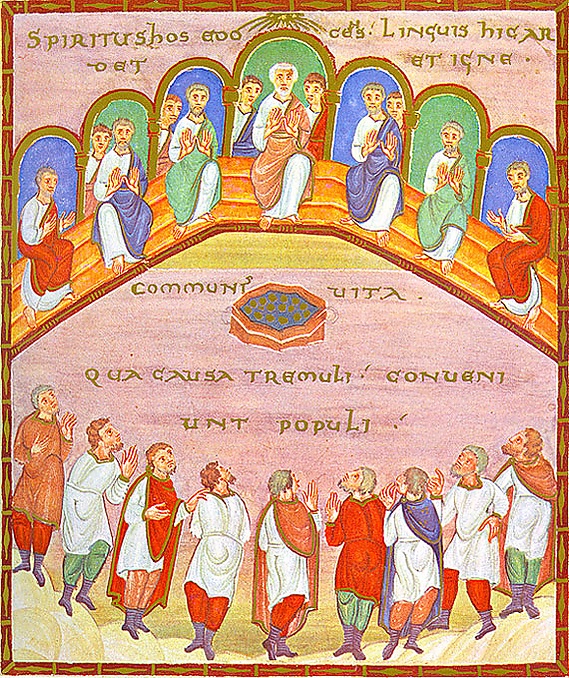 SPIRITUS hOS EDO CET. LINGUIS hICAR
DET ET IGNE.
COMMUNIS UITA.
QUA CAUSA TREMULI. CONUENI
UNT POPULI.